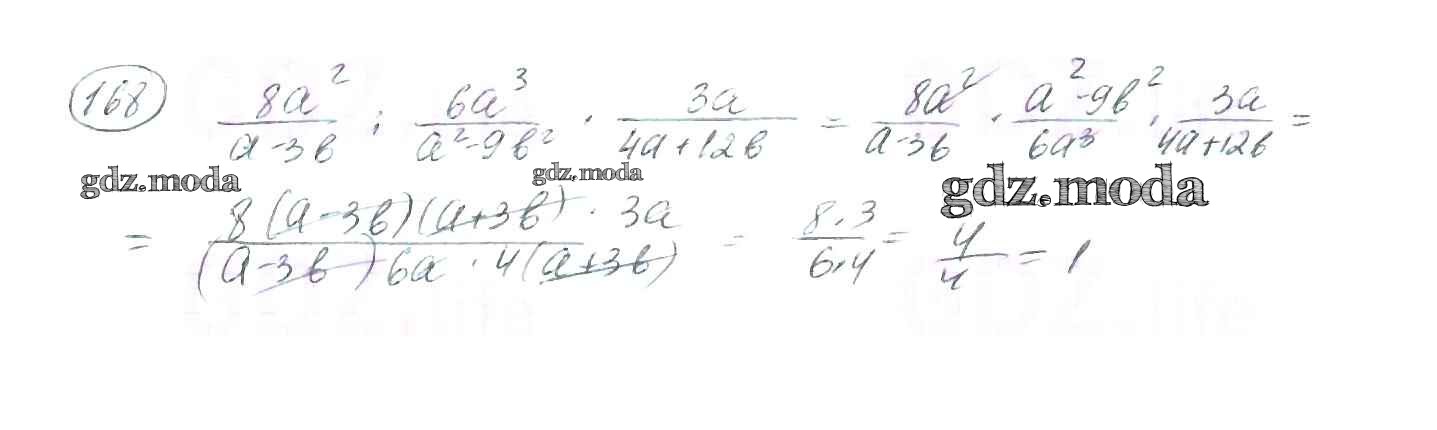 168 8a²/(a-3b) : 6a³/(a²-9b²) · 3a/(4a+12b) = 8a²/(a-3b) · (a²-9b²)/6a³ · 3a/(4a+12b) =
gdz.moda gdz.moda gdz.moda
= 8(a-3b)(a+3b) · 3a/((a-3b)6a · 4(a+3b)) = 8·3/6·4 = 4/4 = 1
GDZ.life GDZ.life